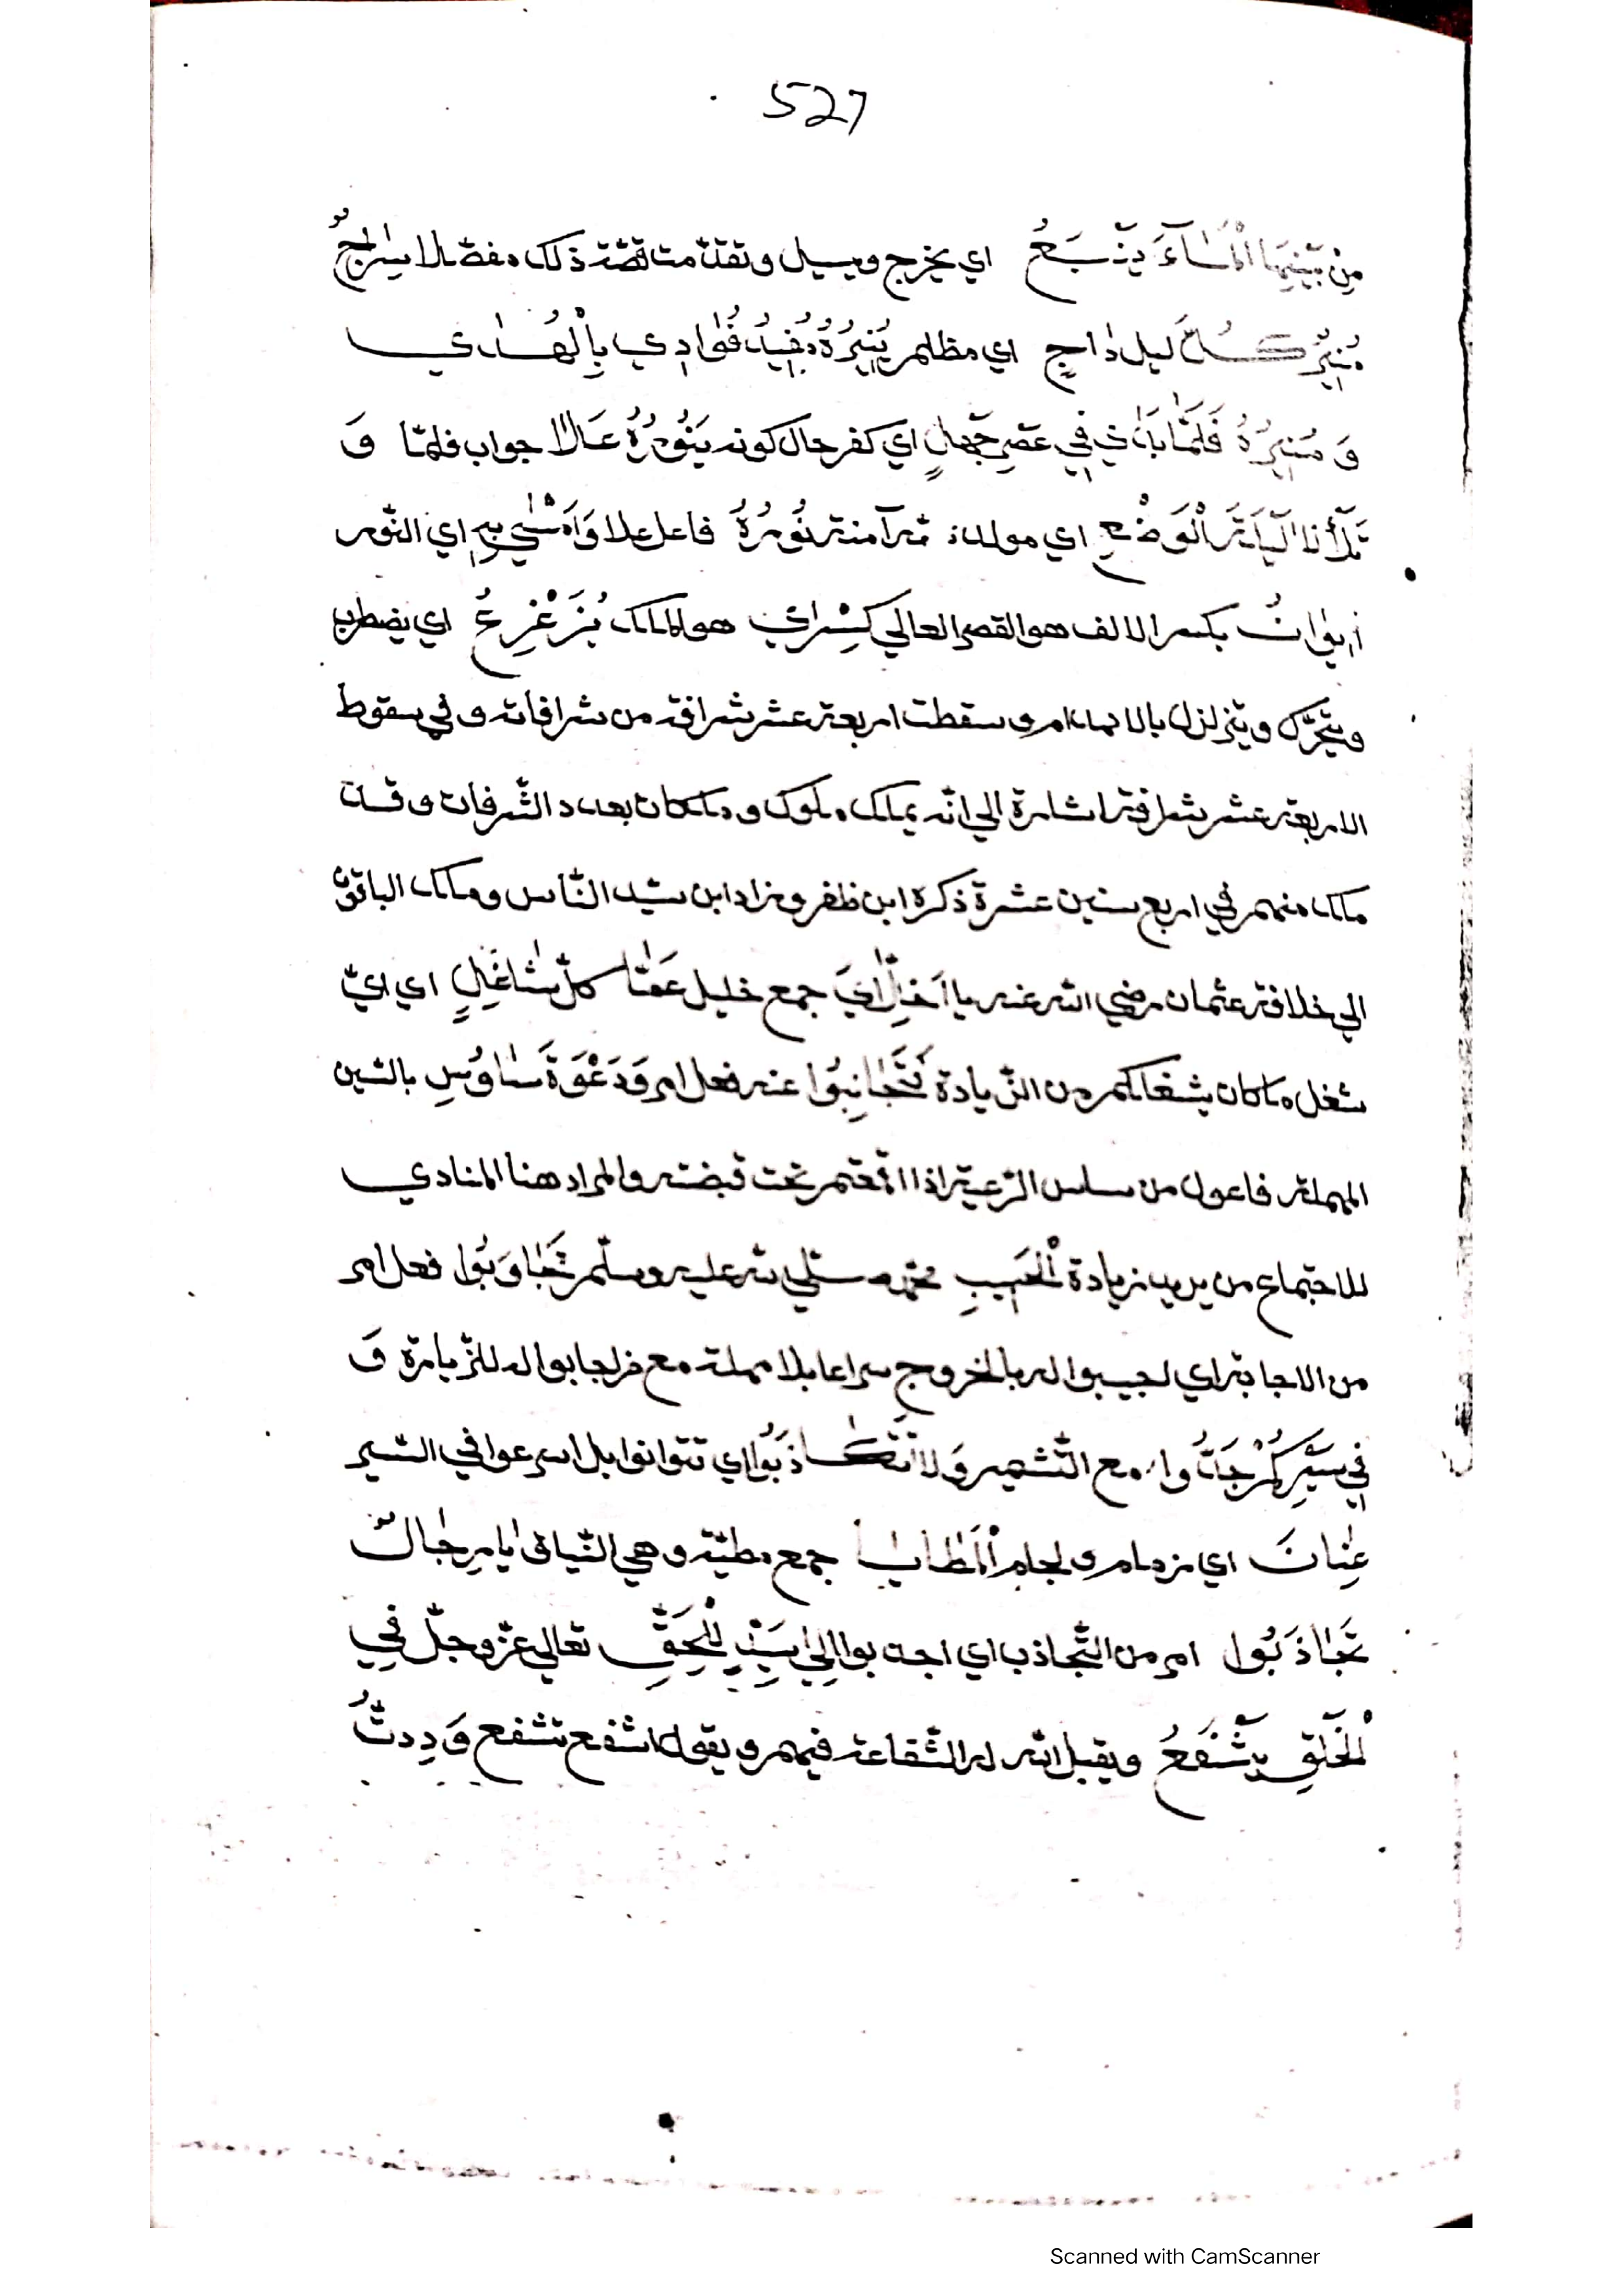 527
مِنْ بَيْنِهَا الْمَاءَ يَنْبَعُ اي يخرج ويسيل وتقدّمت قصّة ذلك مفصّلا سِرَاجٌ
مُنِيرٌ كُلَّ لَيلٍ دَاجٍ اي مظلم يُنِيرُهُ مُفِيدُ فُؤَادِي بِالْهُدٰي
وَمُنِيرُهُ فَلَمَّا بَدَا فِي عَصْرِ جَهْلٍ اي كفر حال كونه يَنُورُهُ عَلَا جواب فلمّا وَ
لَيْلَةَ الْوَضْعِ اي مولده ثم آمنة نُورُهُ فاعل علا وَاَمْسٰي بِهِ اي النّور
اِيوَانُ بكسر الالف هو القصر العالي كِسْرٰي هو الملك يُزَعْزِعُ اي يضطرب
ويتحرّك ويتزلزل بالانهدام وسقطت اربعة عشر شرافة من شرافاته وفي سقوط
الاربعة عشر شرافة اشارة الي انّه يملك ملوك وملكات بعدد الشّرفات وقد
ملك منهم في اربع سنين عشرة ذكره ابن ظفر وزاد ابن سيّد النّاس وملك الباقون
الي خلافة عثمان رضي الله عنه يا اَخِلَّايَ جمع خليل عَنْ كلّ شَاغِلٍ اي ايّ
شغل ما كان يشغلكم من الزّيادة تَجَانَبُوا عنه فعل امر وَدَعْوَةَ سَاوُسِ بالسّين
المهملة فاعول من ساس الرّعيّة اذا تحت قبضته والمراد هنا المنادي
للاجتماع من يريد زيادة الْحَبِيبِ محمّد صلّي الله عليه وسلّم تَجَاوَبُوا فعل امر
من الاجابة اي اجيبوا له بالخروج سراعا بلا مهلة مع من اجابوا له للزّيارة وَ
فِي سَيْرِكُمْ جِدُّوا مع التّشمير وَلَا تَتَكَاذَبُوا اي تتوانوا بل اسرعوا في السّير
عِنَانَ اي زمام ولجام الْمَطَايَا جمع مطيّة وهي النّياق اَيَا رِجَالٌ
تَجَاذَبُوا امر من التّجاذب اي اجذبوا اِلٰي سَيِّدٍ لِلْحَقِّ تعالي عزّ وجلّ فِي
الْخَلْقِ يَشْفَعُ ويقبل الله له الشّفاعة فيهم ويقول اشفع تشفع وَدِدتُّ
Scanned with CamScanner